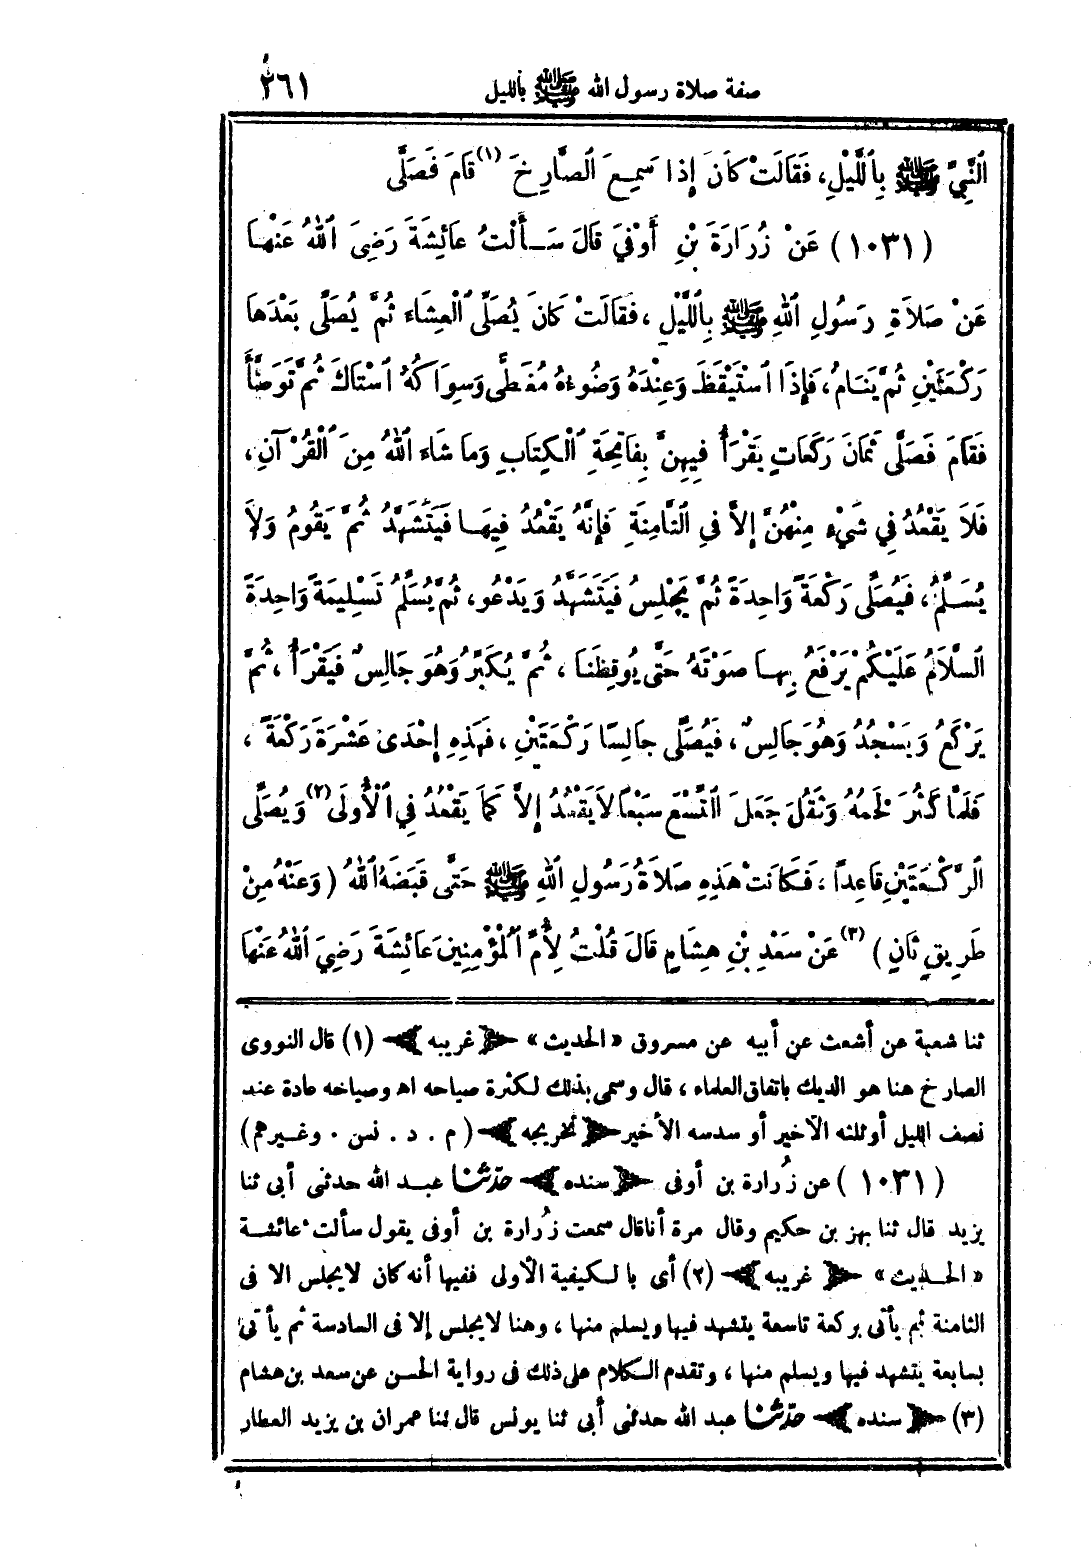 صفة صلاة رسول الله ﷺ بالليل ٢٦١
النَّبِيِّ ﷺ بِاللَّيْلِ، فَقَالَتْ كَانَ إِذَا سَمِعَ الصَّارِخَ (١) قَامَ فَصَلَّى
(١٠٣١) عَنْ زُرَارَةَ بْنِ أَوْفَى قَالَ سَأَلْتُ عَائِشَةَ رَضِيَ اللهُ عَنْهَا
عَنْ صَلَاةِ رَسُولِ اللهِ ﷺ بِاللَّيْلِ، فَقَالَتْ كَانَ يُصَلِّي الْعِشَاءَ ثُمَّ يُصَلِّي بَعْدَهَا
رَكْعَتَيْنِ ثُمَّ يَنَامُ، فَإِذَا اسْتَيْقَظَ وَعِنْدَهُ وَضُوءُهُ مُغَطًّى وَسِوَاكُهُ اسْتَاكَ ثُمَّ تَوَضَّأَ
فَقَامَ فَصَلَّى ثَمَانَ رَكَعَاتٍ يَقْرَأُ فِيهِنَّ بِفَاتِحَةِ الْكِتَابِ وَمَا شَاءَ اللهُ مِنَ الْقُرْآنِ،
فَلَا يَقْعُدُ فِي شَيْءٍ مِنْهُنَّ إِلَّا فِي الثَّامِنَةِ فَإِنَّهُ يَقْعُدُ فِيهَا فَيَتَشَهَّدُ ثُمَّ يَقُومُ وَلَا
يُسَلِّمُ، فَيُصَلِّي رَكْعَةً وَاحِدَةً ثُمَّ يَجْلِسُ فَيَتَشَهَّدُ وَيَدْعُو، ثُمَّ يُسَلِّمُ تَسْلِيمَةً وَاحِدَةً
السَّلَامُ عَلَيْكُمْ يَرْفَعُ بِهَا صَوْتَهُ حَتَّى يُوقِظَنَا، ثُمَّ يُكَبِّرُ وَهُوَ جَالِسٌ فَيَقْرَأُ، ثُمَّ
يَرْكَعُ وَيَسْجُدُ وَهُوَ جَالِسٌ، فَيُصَلِّي جَالِسًا رَكْعَتَيْنِ، فَهَذِهِ إِحْدَى عَشْرَةَ رَكْعَةً،
فَلَمَّا كَثُرَ لَحْمُهُ وَثَقُلَ جَعَلَ التِّسْعَ سَبْعًا لَا يَقْعُدُ إِلَّا كَمَا يَقْعُدُ فِي الْأُولَى (٢) وَيُصَلِّي
الرَّكْعَتَيْنِ قَاعِدًا، فَكَانَتْ هَذِهِ صَلَاةُ رَسُولِ اللهِ ﷺ حَتَّى قَبَضَهُ اللهُ (وَعَنْهُ مِنْ
طَرِيقٍ ثَانٍ) (٣) عَنْ سَعْدِ بْنِ هِشَامٍ قَالَ قُلْتُ لِأُمِّ الْمُؤْمِنِينَ عَائِشَةَ رَضِيَ اللهُ عَنْهَا
ثنا شعبة عن أشعث عن أبيه عن مسروق «الحديث» ﴿غريبه﴾ (١) قال النووى
الصارخ هنا هو الديك باتفاق العلماء، قال وسمى بذلك لكثرة صياحه اه وصياحه عادة عند
نصف الليل أو ثلثه الأخير أو سدسه الأخير ﴿تخريجه﴾ (م . د . نس . وغيرهم)
(١٠٣١) عن زُرارة بن أوفى ﴿سنده﴾ حدّثنا عبد الله حدثنى أبى ثنا
يزيد قال ثنا بهز بن حكيم وقال مرة أنا قال سمعت زُرارة بن أوفى يقول سألت عائشة
«الحديث» ﴿غريبه﴾ (٢) أى بالكيفية الأولى ففيها أنه كان لا يجلس إلا فى
الثامنة ثم يأتى بركعة تاسعة يتشهد فيها ويسلم منها، وهنا لا يجلس إلا فى السادسة ثم يأتى
بسابعة يتشهد فيها ويسلم منها، وتقدم الكلام على ذلك فى رواية الحسن عن سعد بن هشام
(٣) ﴿سنده﴾ حدّثنا عبد الله حدثنى أبى ثنا يونس قال ثنا عمران بن يزيد العطار